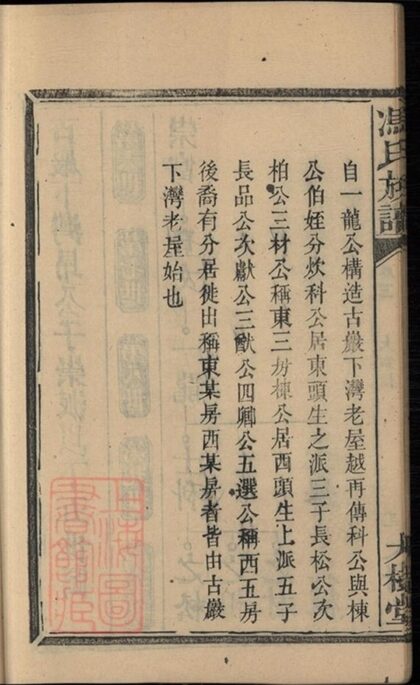 馮氏族譜
大樹堂
自一龍公構造古嚴下灣老屋越再傳科公與棟
公伯姪分炊科公居東頭生之派三子長松公次
柏公三材公稱東三房棟公居西頭生上派五子
長品公次獻公三猷公四卿公五選公稱西五房
後裔有分居徙出稱東某房西某房者皆由古嚴
下灣老屋始也
上海圖書館藏